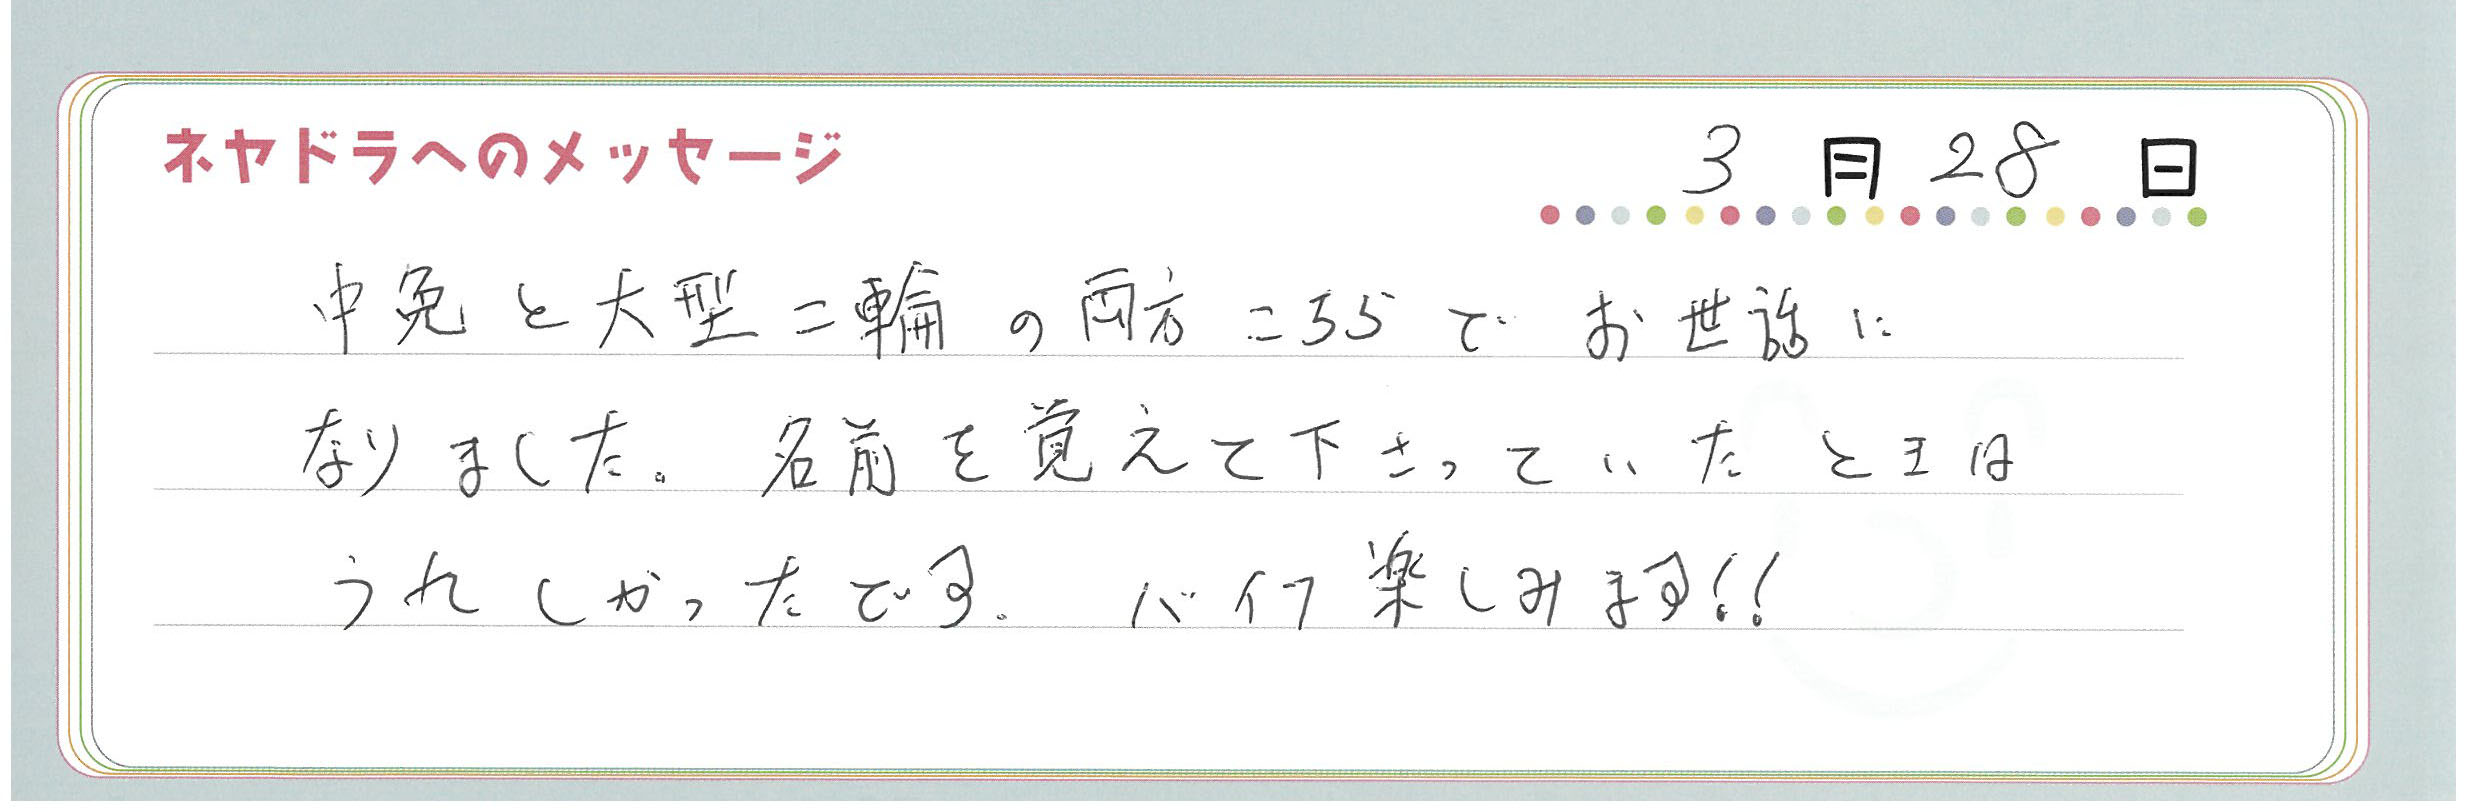 ネヤドラへのメッセージ 3月28日
中免と大型二輪の両方こちらでお世話に
なりました。名前を覚えて下さっていたときは
うれしかったです。バイク楽しみます!!